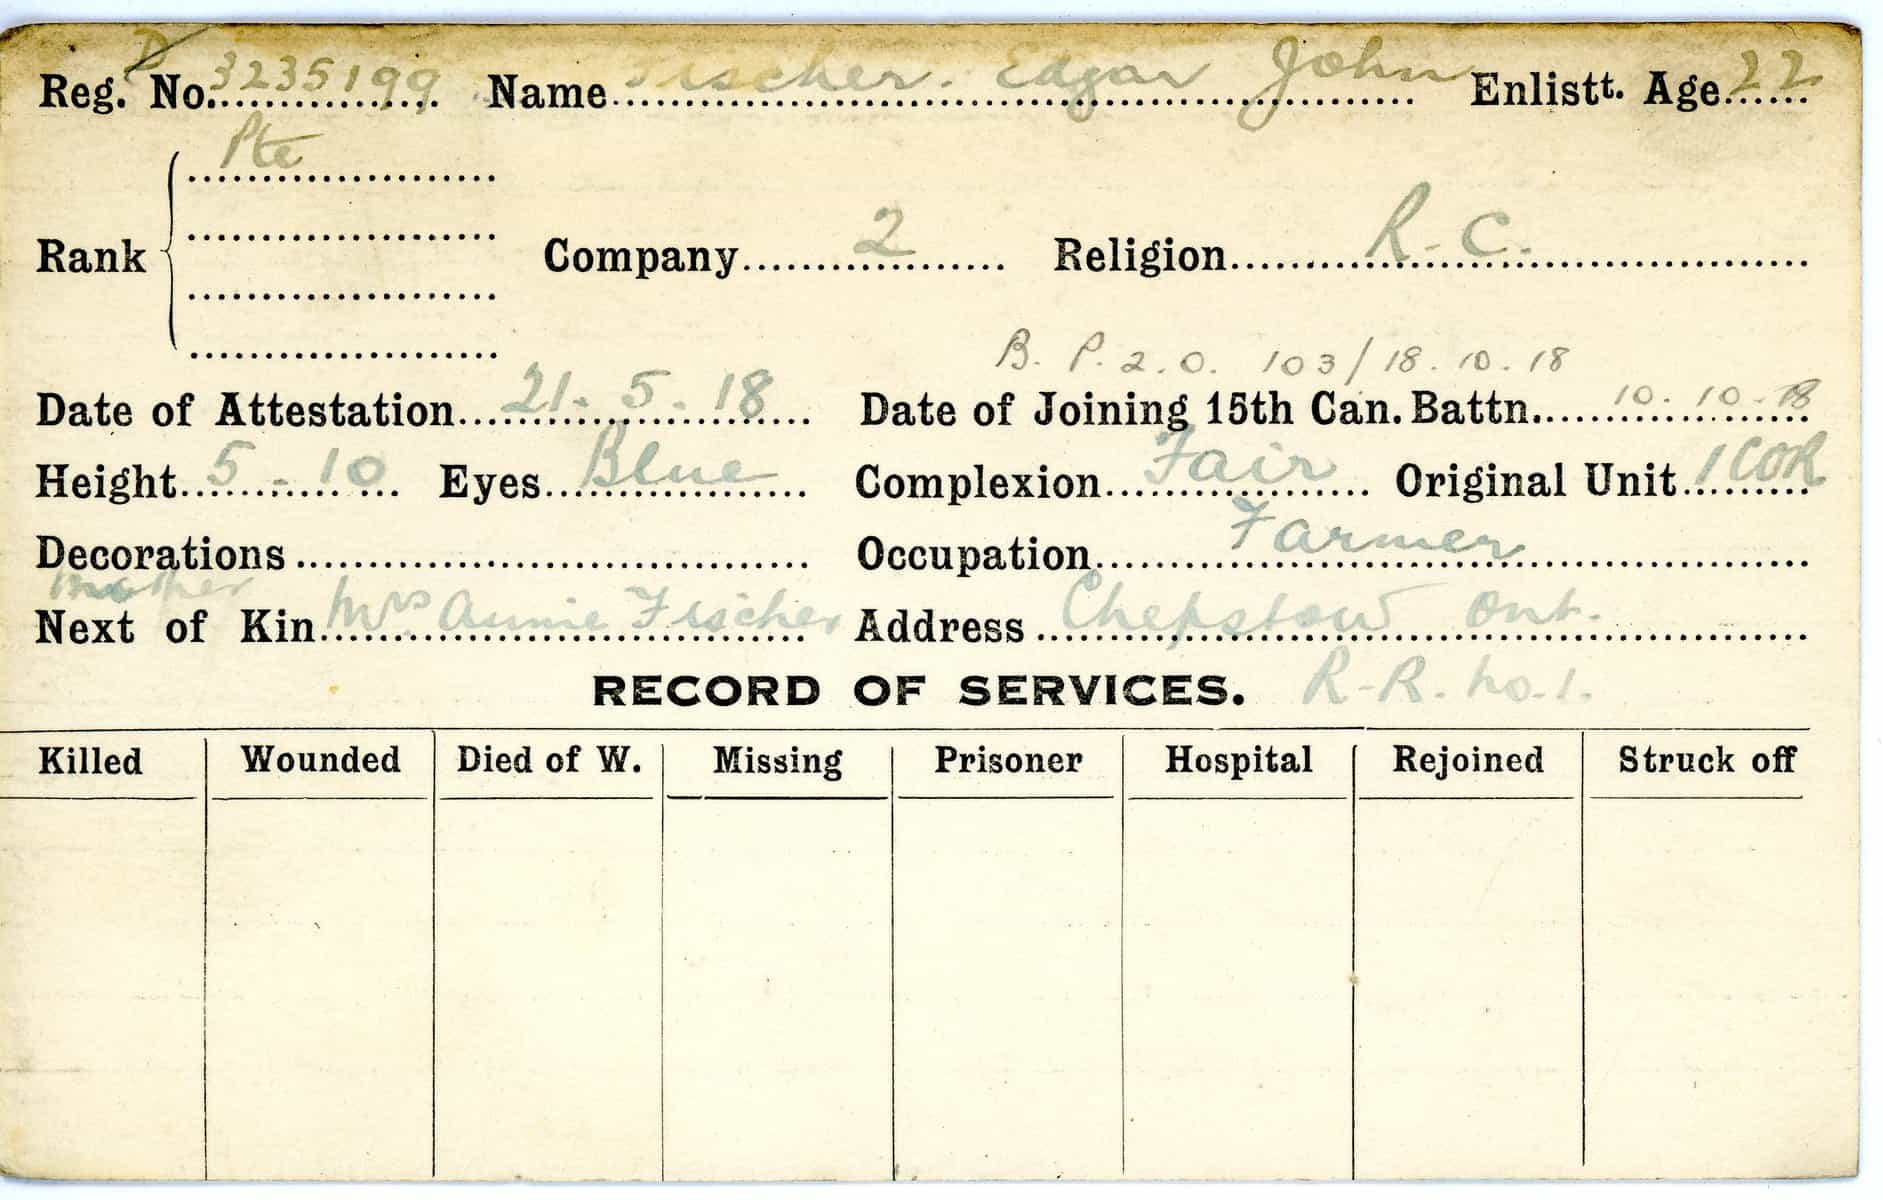 D
Reg. No. 3235199 Name Fischer. Edgar John Enlistt. Age 22
Pte
Rank Company 2 Religion R.C.
B. P. 2. O. 103/18.10.18
Date of Attestation 21.5.18 Date of Joining 15th Can. Battn. 10.10.18
Height 5-10 Eyes Blue Complexion Fair Original Unit 1 COR
Decorations Occupation Farmer
mother
Next of Kin Mrs Annie Fischer Address Chepstow Ont.
RECORD OF SERVICES. R-R. No.1.
Killed Wounded Died of W. Missing Prisoner Hospital Rejoined Struck off